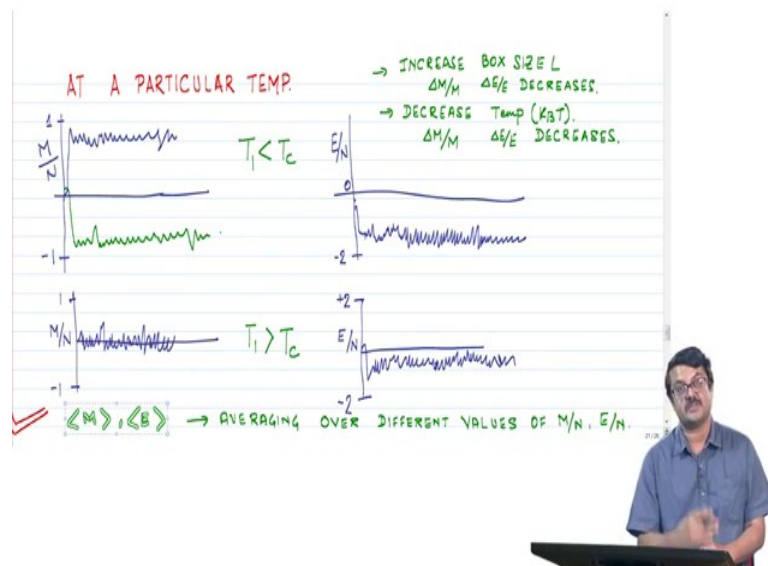 AT A PARTICULAR TEMP.
→ INCREASE BOX SIZE L
ΔM/M ΔE/E DECREASES.
→ DECREASE Temp (KBT).
ΔM/M ΔE/E DECREASES.
1
M/N
-1
T1 < TC
E/N
0
-2
1
M/N
-1
T1 > TC
+2
E/N
-2
<M>, <E> → AVERAGING OVER DIFFERENT VALUES OF M/N, E/N.